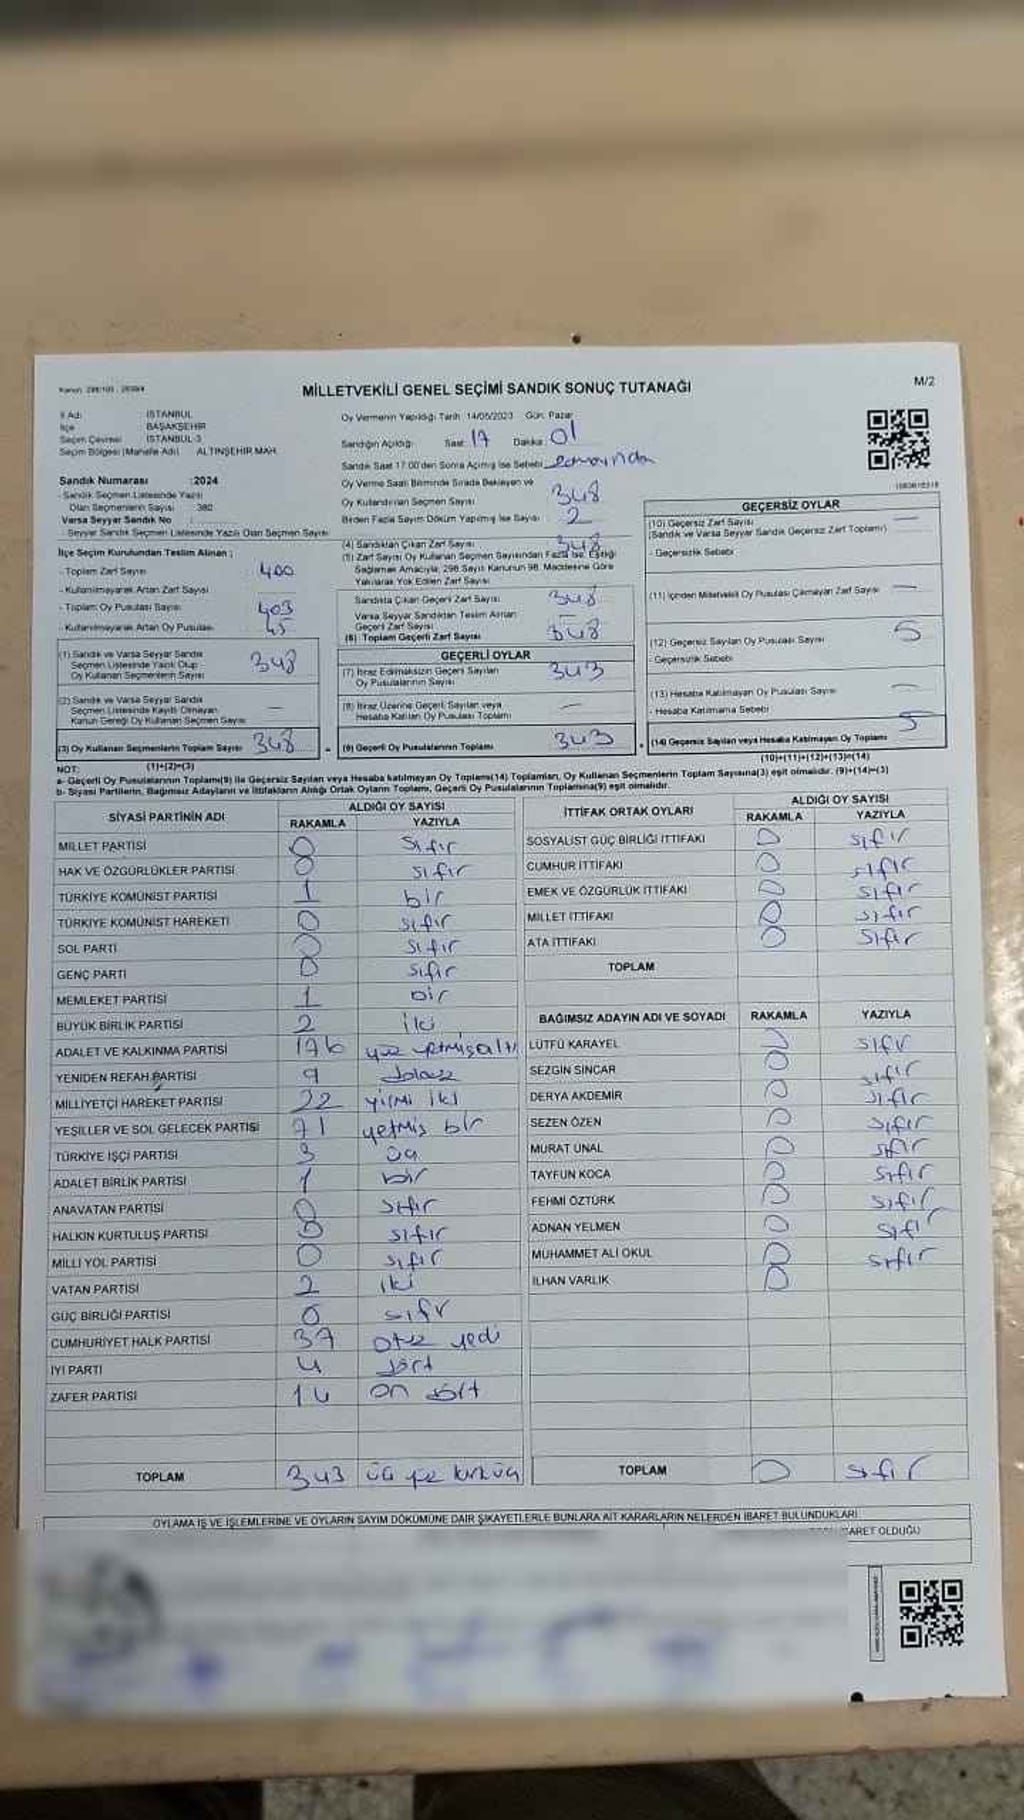 MİLLETVEKİLİ GENEL SEÇİMİ SANDIK SONUÇ TUTANAĞI
M/2
İl Adı : İSTANBUL
İlçe : BAŞAKŞEHİR
Seçim Çevresi : İSTANBUL-3
Seçim Bölgesi (Mahalle Adı) : ALTINŞEHİR MAH.
Sandık Numarası : 2024
- Sandık Seçmen Listesinde Yazılı
Olan Seçmenlerin Sayısı : 380
Varsa Seyyar Sandık No :
- Seyyar Sandık Seçmen Listesinde Yazılı Olan Seçmen Sayısı
İlçe Seçim Kurulundan Teslim Alınan ;
- Toplam Zarf Sayısı 400
- Kullanılmayarak Artan Zarf Sayısı
- Toplam Oy Pusulası Sayısı 403
- Kullanılmayarak Artan Oy Pusulası 45
(1) Sandık ve Varsa Seyyar Sandık
Seçmen Listesinde Yazılı Olup
Oy Kullanan Seçmenlerin Sayısı 348
(2) Sandık ve Varsa Seyyar Sandık
Seçmen Listesinde Kayıtlı Olmayan
Kanun Gereği Oy Kullanan Seçmen Sayısı —
(3) Oy Kullanan Seçmenlerin Toplam Sayısı 348
(1)+(2)=(3)
Oy Vermenin Yapıldığı Tarih: 14/05/2023 Gün: Pazar
Sandığın Açıldığı: Saat 17 Dakika 01
Sandık Saat 17:00'den Sonra Açılmış İse Sebebi
Oy Verme Saati Bitiminde Sırada Bekleyen ve
Oy Kullandırılan Seçmen Sayısı 348
Birden Fazla Sayım Döküm Yapılmış İse Sayısı 2
(4) Sandıktan Çıkan Zarf Sayısı 348
(5) Zarf Sayısı Oy Kullanan Seçmen Sayısından Fazla İse, Eşitliği
Sağlamak Amacıyla, 298 Sayılı Kanunun 98. Maddesine Göre
Yakılarak Yok Edilen Zarf Sayısı
Sandıkta Çıkan Geçerli Zarf Sayısı 348
Varsa Seyyar Sandıktan Teslim Alınan
Geçerli Zarf Sayısı —
(6) Toplam Geçerli Zarf Sayısı 348
GEÇERLİ OYLAR
(7) İtiraz Edilmeksizin Geçerli Sayılan
Oy Pusulalarının Sayısı 343
(8) İtiraz Üzerine Geçerli Sayılan veya
Hesaba Katılan Oy Pusulası Toplamı —
(9) Geçerli Oy Pusulalarının Toplamı 343
GEÇERSİZ OYLAR
(10) Geçersiz Zarf Sayısı —
(Sandık ve Varsa Seyyar Sandık Geçersiz Zarf Toplamı)
- Geçersizlik Sebebi
(11) İçinden Milletvekili Oy Pusulası Çıkmayan Zarf Sayısı —
(12) Geçersiz Sayılan Oy Pusulası Sayısı 5
- Geçersizlik Sebebi
(13) Hesaba Katılmayan Oy Pusulası Sayısı —
- Hesaba Katılmama Sebebi
(14) Geçersiz Sayılan veya Hesaba Katılmayan Oy Toplamı 5
(10)+(11)+(12)+(13)=(14)
NOT:
a- Geçerli Oy Pusulalarının Toplamı(9) ile Geçersiz Sayılan veya Hesaba katılmayan Oy Toplamı(14) Toplamları, Oy Kullanan Seçmenlerin Toplam Sayısına(3) eşit olmalıdır. (9)+(14)=(3)
b- Siyasi Partilerin, Bağımsız Adayların ve İttifakların Aldığı Ortak Oyların Toplamı, Geçerli Oy Pusulalarının Toplamına(9) eşit olmalıdır.
SİYASİ PARTİNİN ADI ALDIĞI OY SAYISI
RAKAMLA YAZIYLA
MİLLET PARTİSİ 0 sıfır
HAK VE ÖZGÜRLÜKLER PARTİSİ 0 sıfır
TÜRKİYE KOMÜNİST PARTİSİ 1 bir
TÜRKİYE KOMÜNİST HAREKETİ 0 sıfır
SOL PARTİ 0 sıfır
GENÇ PARTİ 0 sıfır
MEMLEKET PARTİSİ 1 bir
BÜYÜK BİRLİK PARTİSİ 2 iki
ADALET VE KALKINMA PARTİSİ 176 yüz yetmiş altı
YENİDEN REFAH PARTİSİ 9 dokuz
MİLLİYETÇİ HAREKET PARTİSİ 22 yirmi iki
YEŞİLLER VE SOL GELECEK PARTİSİ 71 yetmiş bir
TÜRKİYE İŞÇİ PARTİSİ 3 üç
ADALET BİRLİK PARTİSİ 1 bir
ANAVATAN PARTİSİ 0 sıfır
HALKIN KURTULUŞ PARTİSİ 0 sıfır
MİLLİ YOL PARTİSİ 0 sıfır
VATAN PARTİSİ 2 iki
GÜÇ BİRLİĞİ PARTİSİ 0 sıfır
CUMHURİYET HALK PARTİSİ 37 otuz yedi
İYİ PARTİ 4 dört
ZAFER PARTİSİ 14 on dört
TOPLAM 343 üç yüz kırküç
İTTİFAK ORTAK OYLARI ALDIĞI OY SAYISI
RAKAMLA YAZIYLA
SOSYALİST GÜÇ BİRLİĞİ İTTİFAKI 0 sıfır
CUMHUR İTTİFAKI 0 sıfır
EMEK VE ÖZGÜRLÜK İTTİFAKI 0 sıfır
MİLLET İTTİFAKI 0 sıfır
ATA İTTİFAKI 0 sıfır
TOPLAM
BAĞIMSIZ ADAYIN ADI VE SOYADI RAKAMLA YAZIYLA
LÜTFÜ KARAYEL 0 sıfır
SEZGİN SİNCAR 0 sıfır
DERYA AKDEMİR 0 sıfır
SEZEN ÖZEN 0 sıfır
MURAT ÜNAL 0 sıfır
TAYFUN KOCA 0 sıfır
FEHMİ ÖZTÜRK 0 sıfır
ADNAN YELMEN 0 sıfır
MUHAMMET ALİ OKUL 0 sıfır
İLHAN VARLIK 0
TOPLAM 0 sıfır
OYLAMA İŞ VE İŞLEMLERİNE VE OYLARIN SAYIM DÖKÜMÜNE DAİR ŞİKAYETLERLE BUNLARA AİT KARARLARIN NELERDEN İBARET BULUNDUKLARI
OLDUĞU